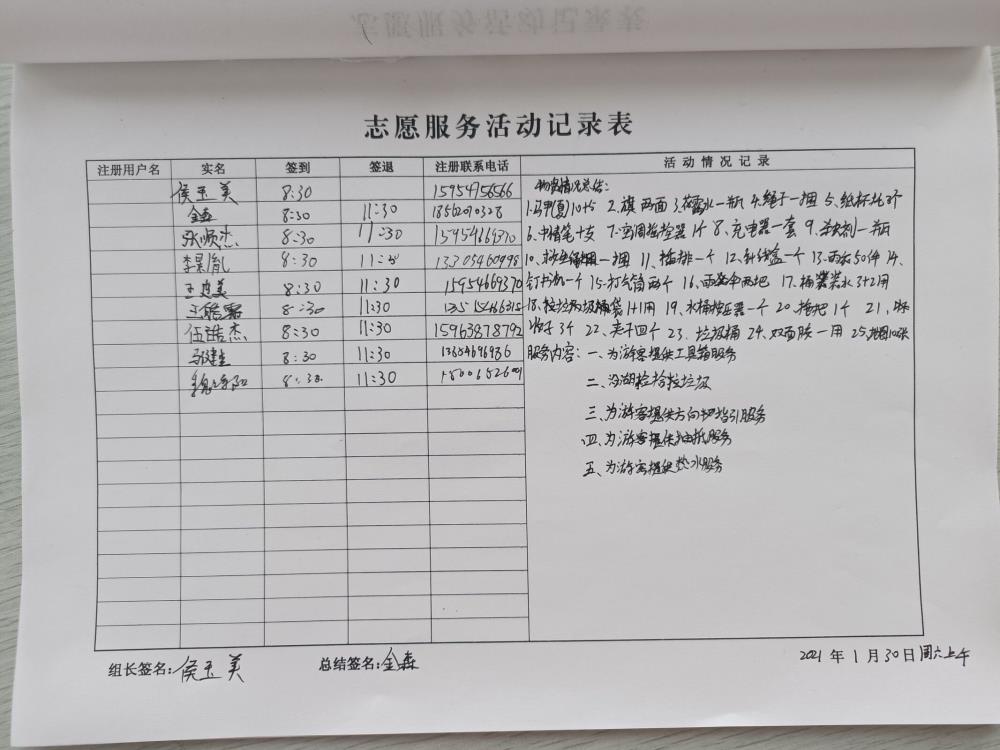 志愿服务活动记录表
注册用户名 实名 签到 签退 注册联系电话 活动情况记录
侯玉美 8:30 15954756566
金森 8:30 11:30
张顺杰 8:30 11:30 15954669370
8:30 13305460998
王建美 8:30 11:30 15954669370
8:30 11:30
伍浩杰 8:30 11:30 15963878792
8:30 11:30 13654696936
8:30 11:30
物资情况总结:
1.马甲(夏)10件 2、旗两面 3.花露水一瓶 4.绳子一捆 5、纸杯
6、中精笔十支 7、空调遥控器1个 8、充电器一套 9、一瓶
10、一捆 11、插排一个 12、针线盒一个 13、雨衣50件 14、
钉书机一个 15、打气筒两个 16、两把 17、桶装水3+2用
18、垃圾袋1+1用 19、水桶按压器一个 20、拖把1个 21、
3个 22、夹子四个 23、垃圾桶 24、双面胶一用 25、
服务内容:一、为游客提供工具箱服务
二、沿湖捡拾垃圾
三、为游客提供方向和指引服务
四、为游客提供服务
五、为游客提供热水服务
组长签名:侯玉美 总结签名:金森 2021年1月30日周六上午